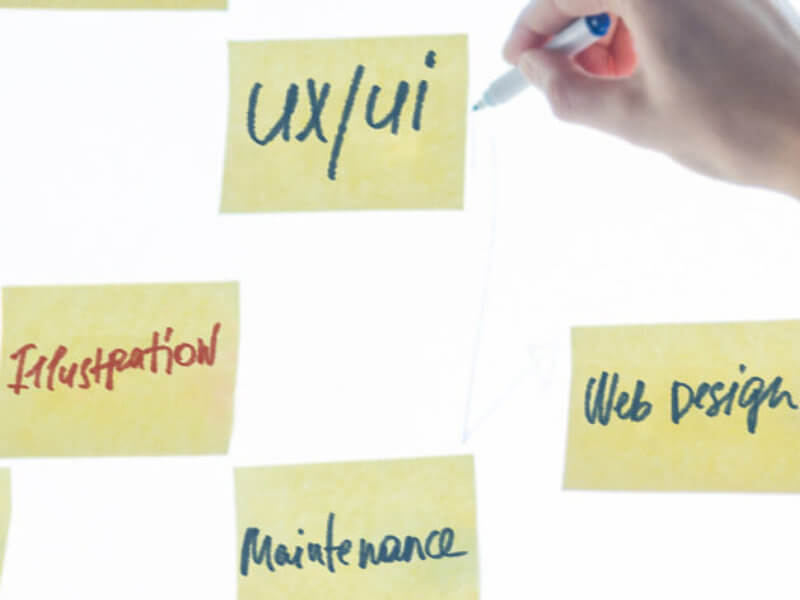 ux/ui
Illustration
Web Design
Maintenance